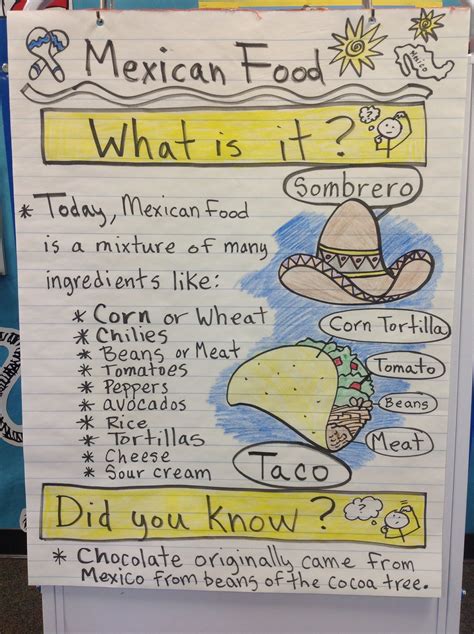 Mexican Food
Mexico
What is it?
?
Sombrero
* Today, Mexican Food
is a mixture of many
ingredients like:
* Corn or Wheat
* Chilies
* Beans or Meat
* Tomatoes
* Peppers
* avocados
* Rice
* Tortillas
* Cheese
* Sour cream
Corn Tortilla
Tomato
Beans
Meat
Taco
Did you know?
?
* Chocolate originally came from
Mexico from beans of the cocoa tree.